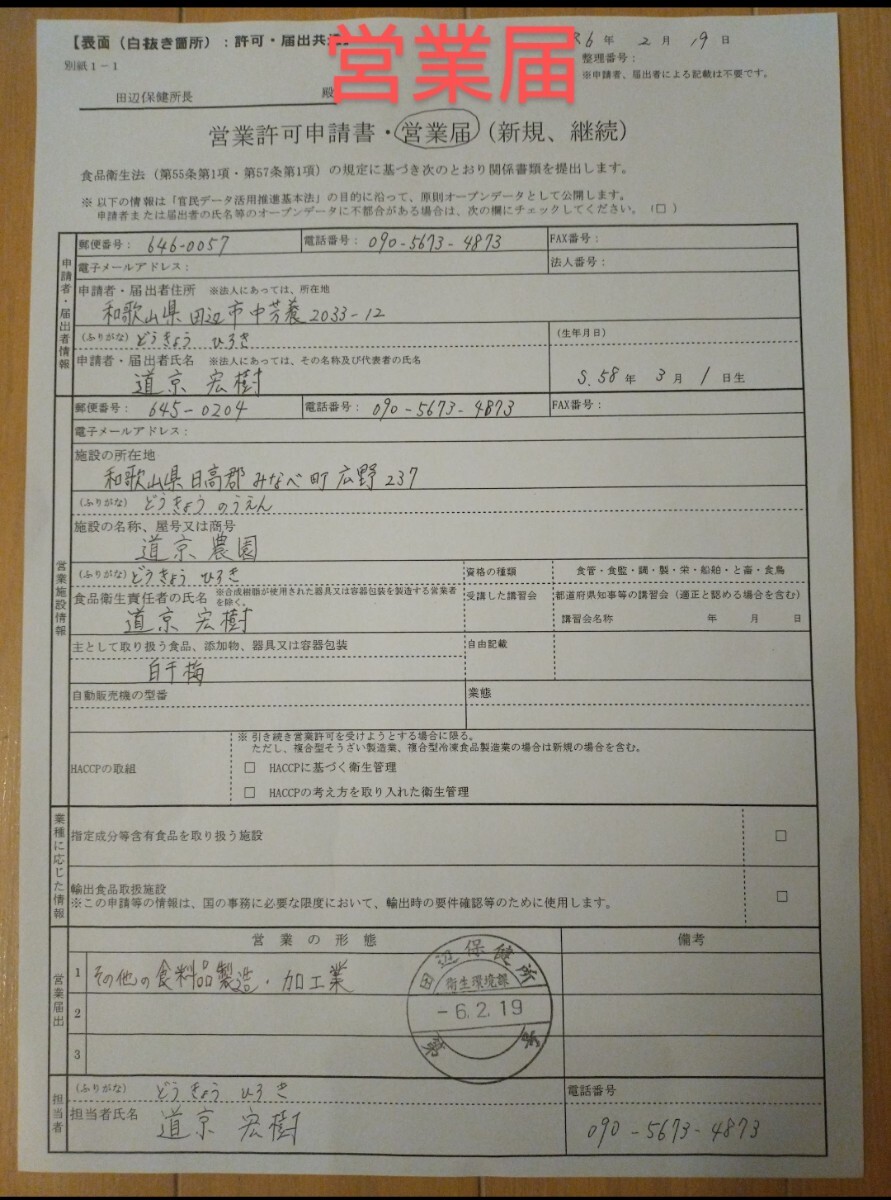 【表面（白抜き箇所）：許可・届出共通】
営業届
R6年 2月 19日
別紙1-1
整理番号：
※申請者、届出者による記載は不要です。
田辺保健所長 殿
営業許可申請書・営業届（新規、継続）
食品衛生法（第55条第1項・第57条第1項）の規定に基づき次のとおり関係書類を提出します。
※ 以下の情報は「官民データ活用推進基本法」の目的に沿って、原則オープンデータとして公開します。
申請者または届出者の氏名等のオープンデータに不都合がある場合は、次の欄にチェックしてください。（□）
申請者・届出者情報
郵便番号： 646-0057 電話番号： 090-5673-4873 FAX番号：
電子メールアドレス： 法人番号：
申請者・届出者住所 ※法人にあっては、所在地
和歌山県田辺市中芳養2033-12
（ふりがな）どうきょう ひろき （生年月日）
申請者・届出者氏名 ※法人にあっては、その名称及び代表者の氏名
道京 宏樹 S.58年 3月 1日生
営業施設情報
郵便番号： 645-0204 電話番号： 090-5673-4873 FAX番号：
電子メールアドレス：
施設の所在地
和歌山県日高郡みなべ町広野237
（ふりがな）どうきょうのうえん
施設の名称、屋号又は商号
道京農園
（ふりがな）どうきょう ひろき 資格の種類 食管・食監・調・製・栄・船舶・と畜・食鳥
食品衛生責任者の氏名 ※合成樹脂が使用された器具又は容器包装を製造する営業者を除く。 受講した講習会 都道府県知事等の講習会（適正と認める場合を含む）
道京 宏樹 講習会名称 年 月 日
主として取り扱う食品、添加物、器具又は容器包装 自由記載
白干梅
自動販売機の型番 業態
HACCPの取組
※ 引き続き営業許可を受けようとする場合に限る。
ただし、複合型そうざい製造業、複合型冷凍食品製造業の場合は新規の場合を含む。
□ HACCPに基づく衛生管理
□ HACCPの考え方を取り入れた衛生管理
業種に応じた情報
指定成分等含有食品を取り扱う施設 □
輸出食品取扱施設 □
※この申請等の情報は、国の事務に必要な限度において、輸出時の要件確認等のために使用します。
営業届出
営業の形態 備考
1 その他の食料品製造・加工業
2
3
田辺保健所
衛生環境課
-6.2.19
第 号
担当者
（ふりがな）どうきょう ひろき 電話番号
担当者氏名 道京 宏樹 090-5673-4873